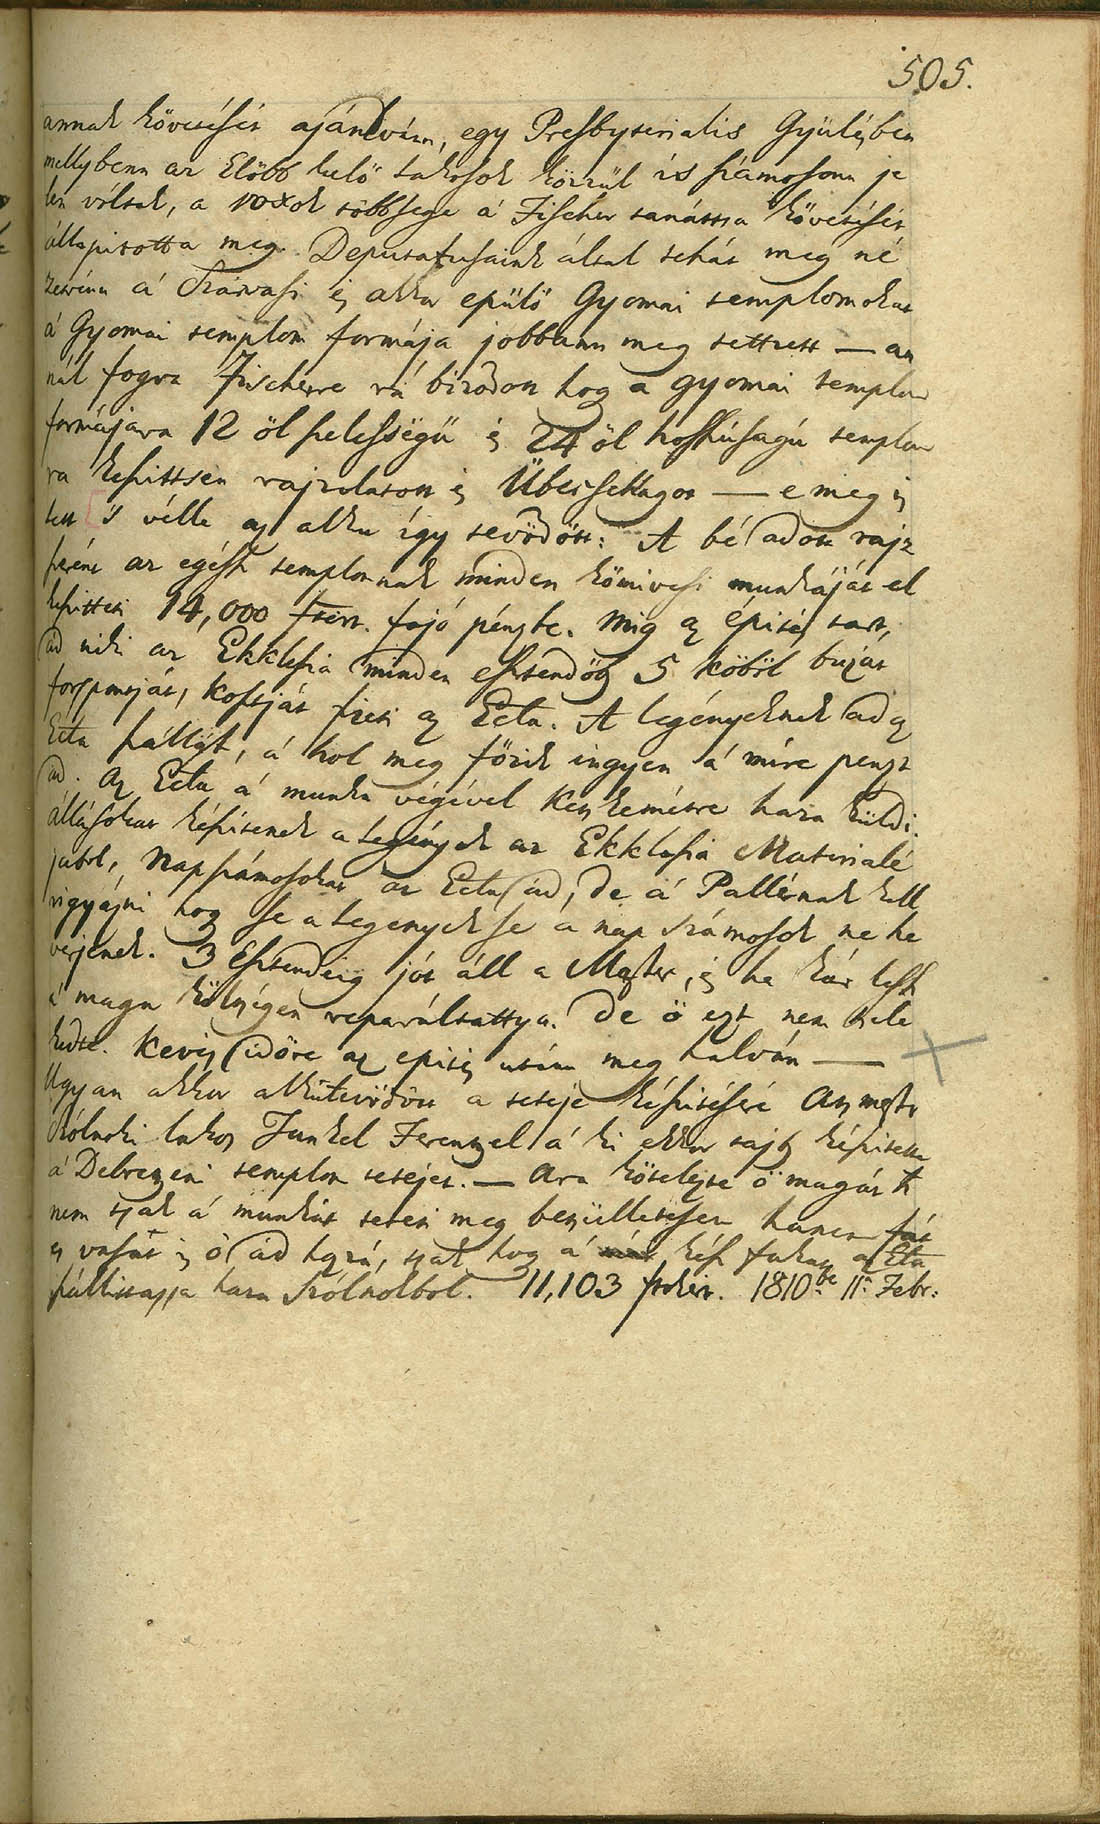 505.
annak követését ajánlván, egy Presbyterialis Gyűlésben
mellybenn az Előbb kelő Lakosok közzűl is számosonn je
len vóltak, a voxok többsége á Fischer tanátsa követését
állapitotta meg. Deputatusaink által tehát meg né
zetvénn á Szarvasi és akkor epülő Gyomai templomokat
á Gyomai templom formája jobbann meg tettzett — an
nál fogva Fischerre rá bizódott hogy a gyomai templom
formájara 12 öl szelességű és 24 öl hosszúságú templom
ra késszittsen rajzolatott és Überschlagot — e meg is
lett 's vélle az alku így tevődött: A bé adott rajz
szerént az egész templomnak minden kőmivesi munkáját el
készitteti 14,000 ftért. fojó pénzbe. Mig az épités tart,
ád néki az Ekklésia minden esztendőbe 5 köböl buzát
forspontját, kosztját fizeti az Eccla. A legényeknek ad az
Eccla szállást, á hol meg főzik ingyen á mire penzt
ád. Az Eccla á munka végével Kecskemétre haza küldi.
állásokat készitenek a legények az Ekklésia Materialé
jából, Napszámosokat az Eccla ád, de á Pallérnak kell
vigyázni hogy se a legenyek se a nap számosok ne he
verjenek. 3 Esztendeig jót áll a Mester, és ha kár lesz
á maga költségén reparáltattya. De ő ezt nem tele
hedte. Kevés időre az épités utánn meg halván —
Ugyan akkor alkutevődött a teteje készitéséré Áts mestr
Szólnoki lakos Junkel Ferentzel á ki ekkor
á Debretzeni templom tetejét. — Arra kötelezte ő magát h
nem tsak á munkát teszi meg betsülletessen hanem fát
és vasat is ő ád hozzá, tsak hogy á kész fákat az Ecla
szállittassa haza Szólnokból. 11,103 ftokér. 1810be 11a Febr: